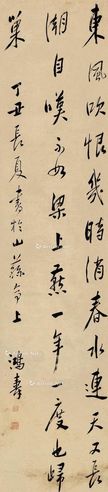 東風吹恨幾時消春水連天又長
潮自嘆不如梁上燕一年一度也歸
巢
丁丑長夏書於山蘇舟上
鴻壽